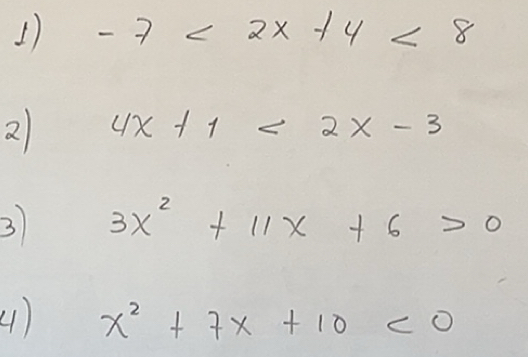 1) - 7 < 2x + 4 < 8
2) 4x + 1 < 2x - 3
3) 3x² + 11x + 6 > 0
4) x² + 7x + 10 < 0